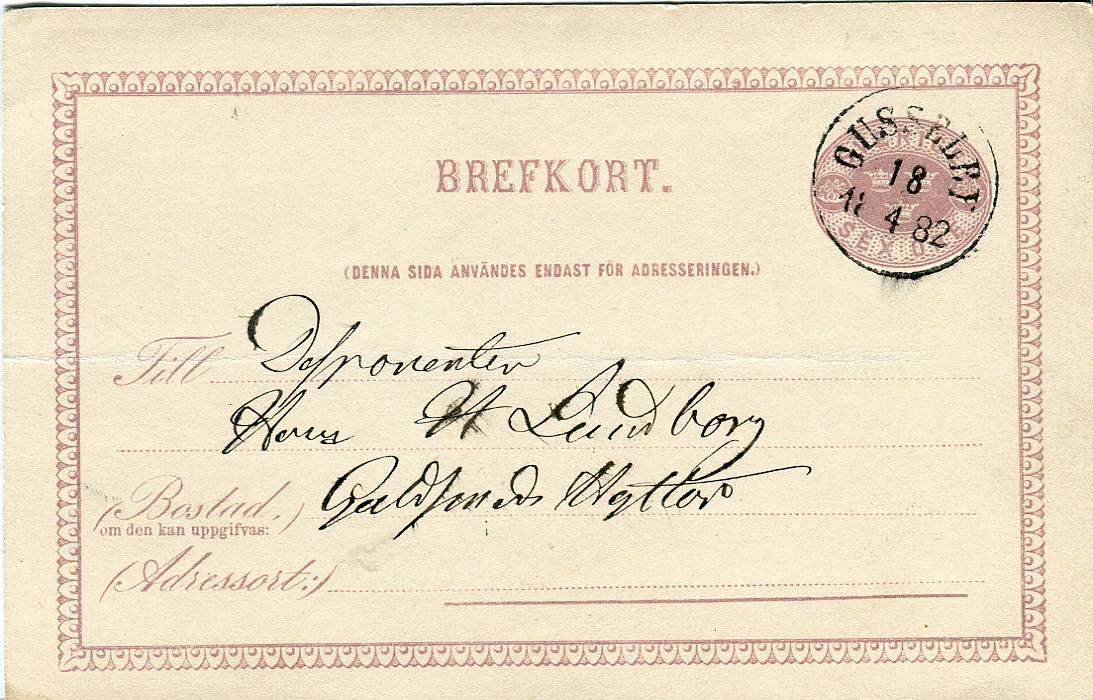 BREFKORT.
GUSSELBY
18
18 4 82
SEX ÖRE
(DENNA SIDA ANVÄNDES ENDAST FÖR ADRESSERINGEN.)
Till Disponenten
Herr H Lundborg
(Bostad.) Guldsmeds Hyttan
om den kan uppgifvas:
(Adressort:)